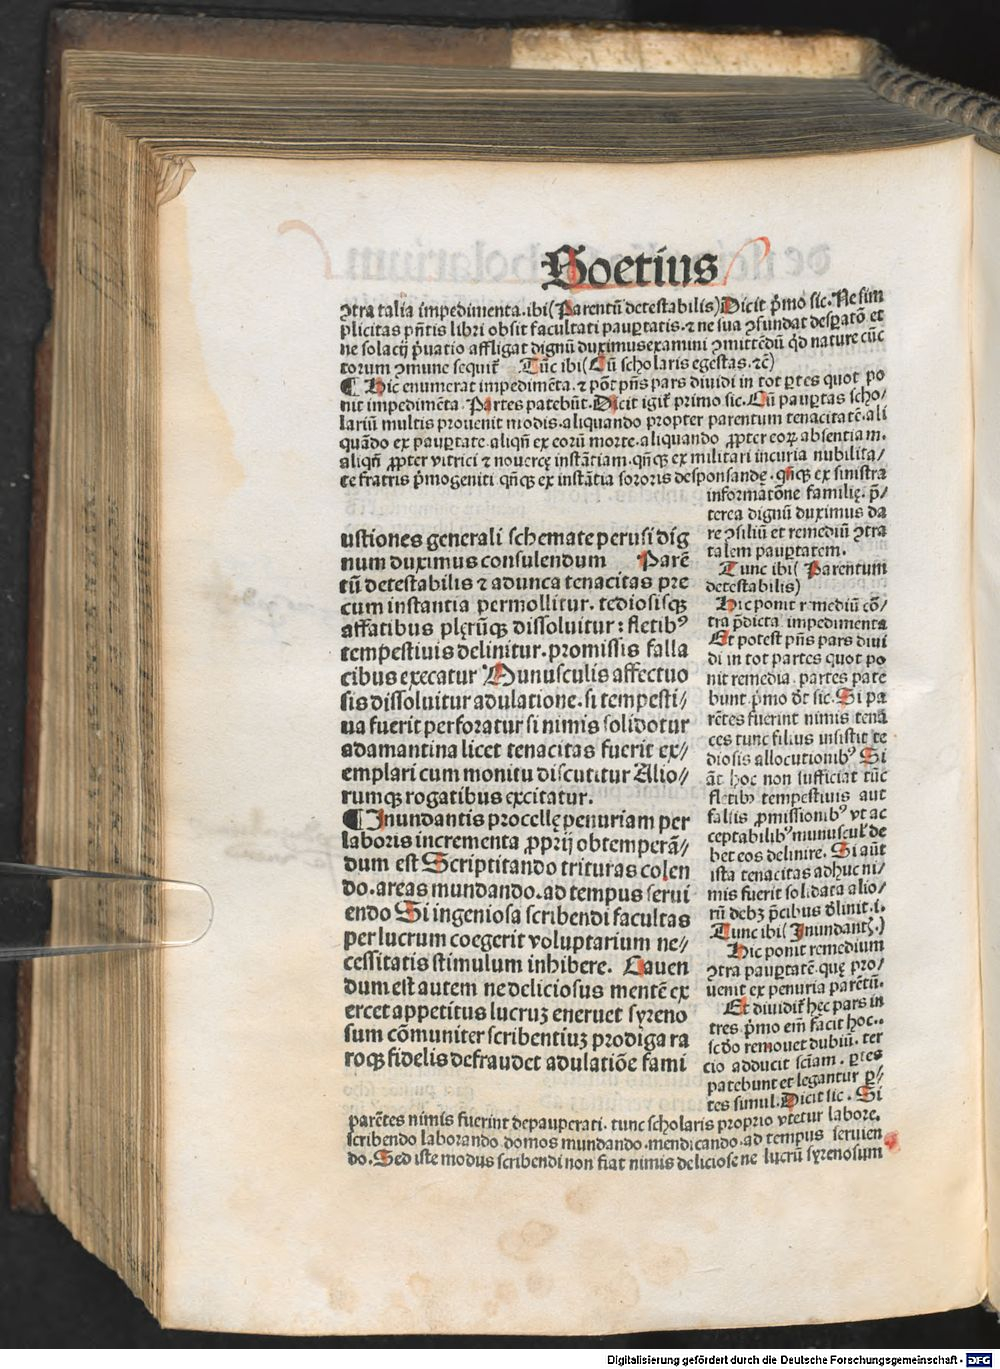 Boetius
ꝯtra talia impedimenta.ibi(Parentũ detestabilis)Dicit p̃mo sic.Ne sim
plicitas pñtis libri obsit facultati pauꝑtatis.⁊ ne sua ꝯfundat desꝑatõ et
ne solacij p̃uatio affligat dignũ duximusexamini ꝯmittẽdũ qd̃ nature cũc
torum ꝯmune sequit᷑ Tũc ibi(Cũ scholaris egestas.⁊c̃)
¶ Hic enumerat impedimẽta.⁊ põt pñs pars diuidi in tot ꝑtes quot po
nit impedimẽta.Partes patebũt.Dicit igit᷑ primo sic.Cũ pauꝑtas scho/
lariũ multis prouenit modis.aliquando propter parentum tenacitatẽ.ali
quãdo ex pauꝑtate.aliqñ ex eorũ morte.aliquando ꝓpter eoꝝ absentiam.
aliqñ ꝓpter vitrici ⁊ nouercę instãtiam.qñqꝫ ex militari incuria nubilita/
te fratris p̃mogeniti qñqꝫ ex instãtia sororis desponsande.qñqꝫ ex sinistra
informatõne familię.p̃/
terea dignũ duximus da
re ꝯsiliũ et remediũ ꝯtra
talem pauꝑtatem.
Tunc ibi(Parentum
detestabilis)
Hic ponit remediũ cõ/
tra p̃dicta impedimenta
Et potest pñs pars diui
di in tot partes quot po
nit remedia.partes pate
bunt p̃mo dt̃ sic.Si pa
rẽtes fuerint nimis tena
ces tunc filius insistit te
diosis allocutionibꝰ Si
aũt hoc non sufficiat tũc
fletibꝰ tempestiuis aut
falsis ꝓmissionibꝰ vt ac
ceptabilibꝰ munuscul᷑ de
bet eos delinire.Si aũt
ista tenacitas adhuc ni/
mis fuerit solidata alio/
rũ debꝫ p̃cibus d̃linit.i.
Tunc ibi(Inundantꝭ.)
Hic ponit remedium
ꝯtra pauꝑtatẽ.quę pro/
uenit ex penuria parẽtũ.
Et diuidit᷑ hęc pars in
tres p̃mo em̃ facit hoc..
scd̃o remouet dubiũ.ter
cio adducit scĩam.ꝑtes
patebunt et legantur ꝑ/
tes simul.Dicit sic.Si
ustiones generali schemate perusi dig
num duximus consulendum Parẽ
tũ detestabilis ⁊ adunca tenacitas pre
cum instantia permollitur.tediosisqꝫ
affatibus plęrũqꝫ dissoluitur:fletibꝰ
tempestiuis delinitur.promissis falla
cibus execatur Munusculis affectuo
sis dissoluitur adulatione.si tempesti/
ua fuerit perforatur si nimis solidotur
adamantina licet tenacitas fuerit ex/
emplari cum monitu discutitur Alio/
rumqꝫ rogatibus excitatur.
¶ Inundantis procellę penuriam per
laboris incrementa ꝓprij obtemperã/
dum est Scriptitando trituras colen
do.areas mundando.ad tempus serui
endo Si ingeniosa scribendi facultas
per lucrum coegerit voluptarium ne/
cessitatis stimulum inhibere. Cauen
dum est autem ne deliciosus mentẽ ex
ercet appetitus lucruꝫ eneruet syreno
sum cõmuniter scribentiuꝫ prodiga ra
roqꝫ fidelis defraudet adulatiõe fami
parẽtes nimis fuerint depauperati.tunc scholaris proprio vtetur labore.
scribendo laborando domos mundando.mendicando.ad tempus seruien
do.Sed iste modus scribendi non fiat nimis deliciose ne lucrũ syrenosum
Digitalisierung gefördert durch die Deutsche Forschungsgemeinschaft - DFG